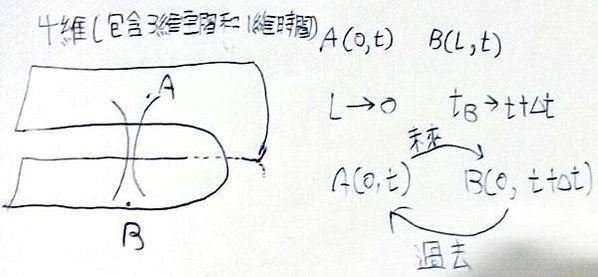 4維(包含3維空間和1維時間)
A(0,t) B(L,t)
A
L→0 t_B→t+Δt
未來
A(0,t) B(0, t+Δt)
過去
B